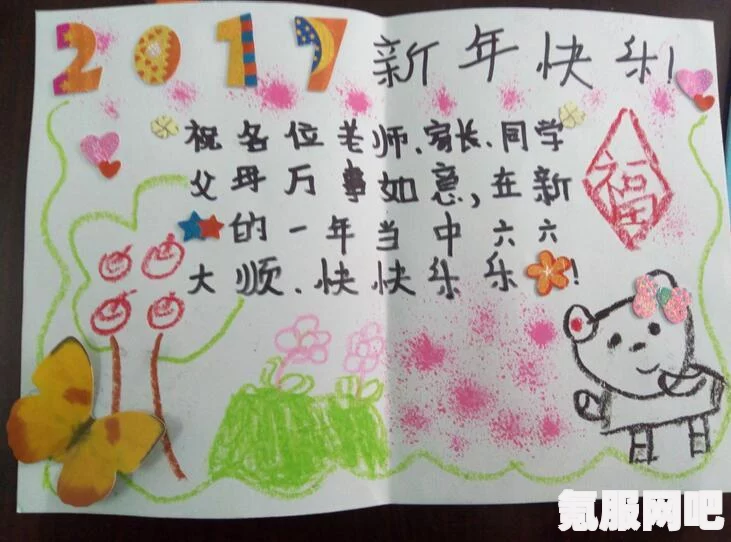 2017 新年快乐!
祝各位老师、家长、同学
父母万事如意,在新
的一年当中六六
大顺、快快乐乐!
福
氪服网吧